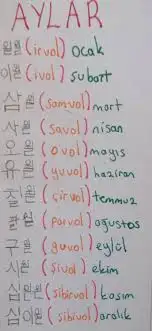 AYLAR
(irvol) ocak
이월 (ivol) şubart
삼월 (samvol) mart
사월 (savol) nisan
오월 (ovol) mayıs
유월 (yuvol) haziran
칠월 (çirvol) temmuz
팔월 (parvol) ağustos
구월 (guvol) eylül
시월 (şivol) ekim
(şibirvol) kasım
심이월 (şibivol) aralık